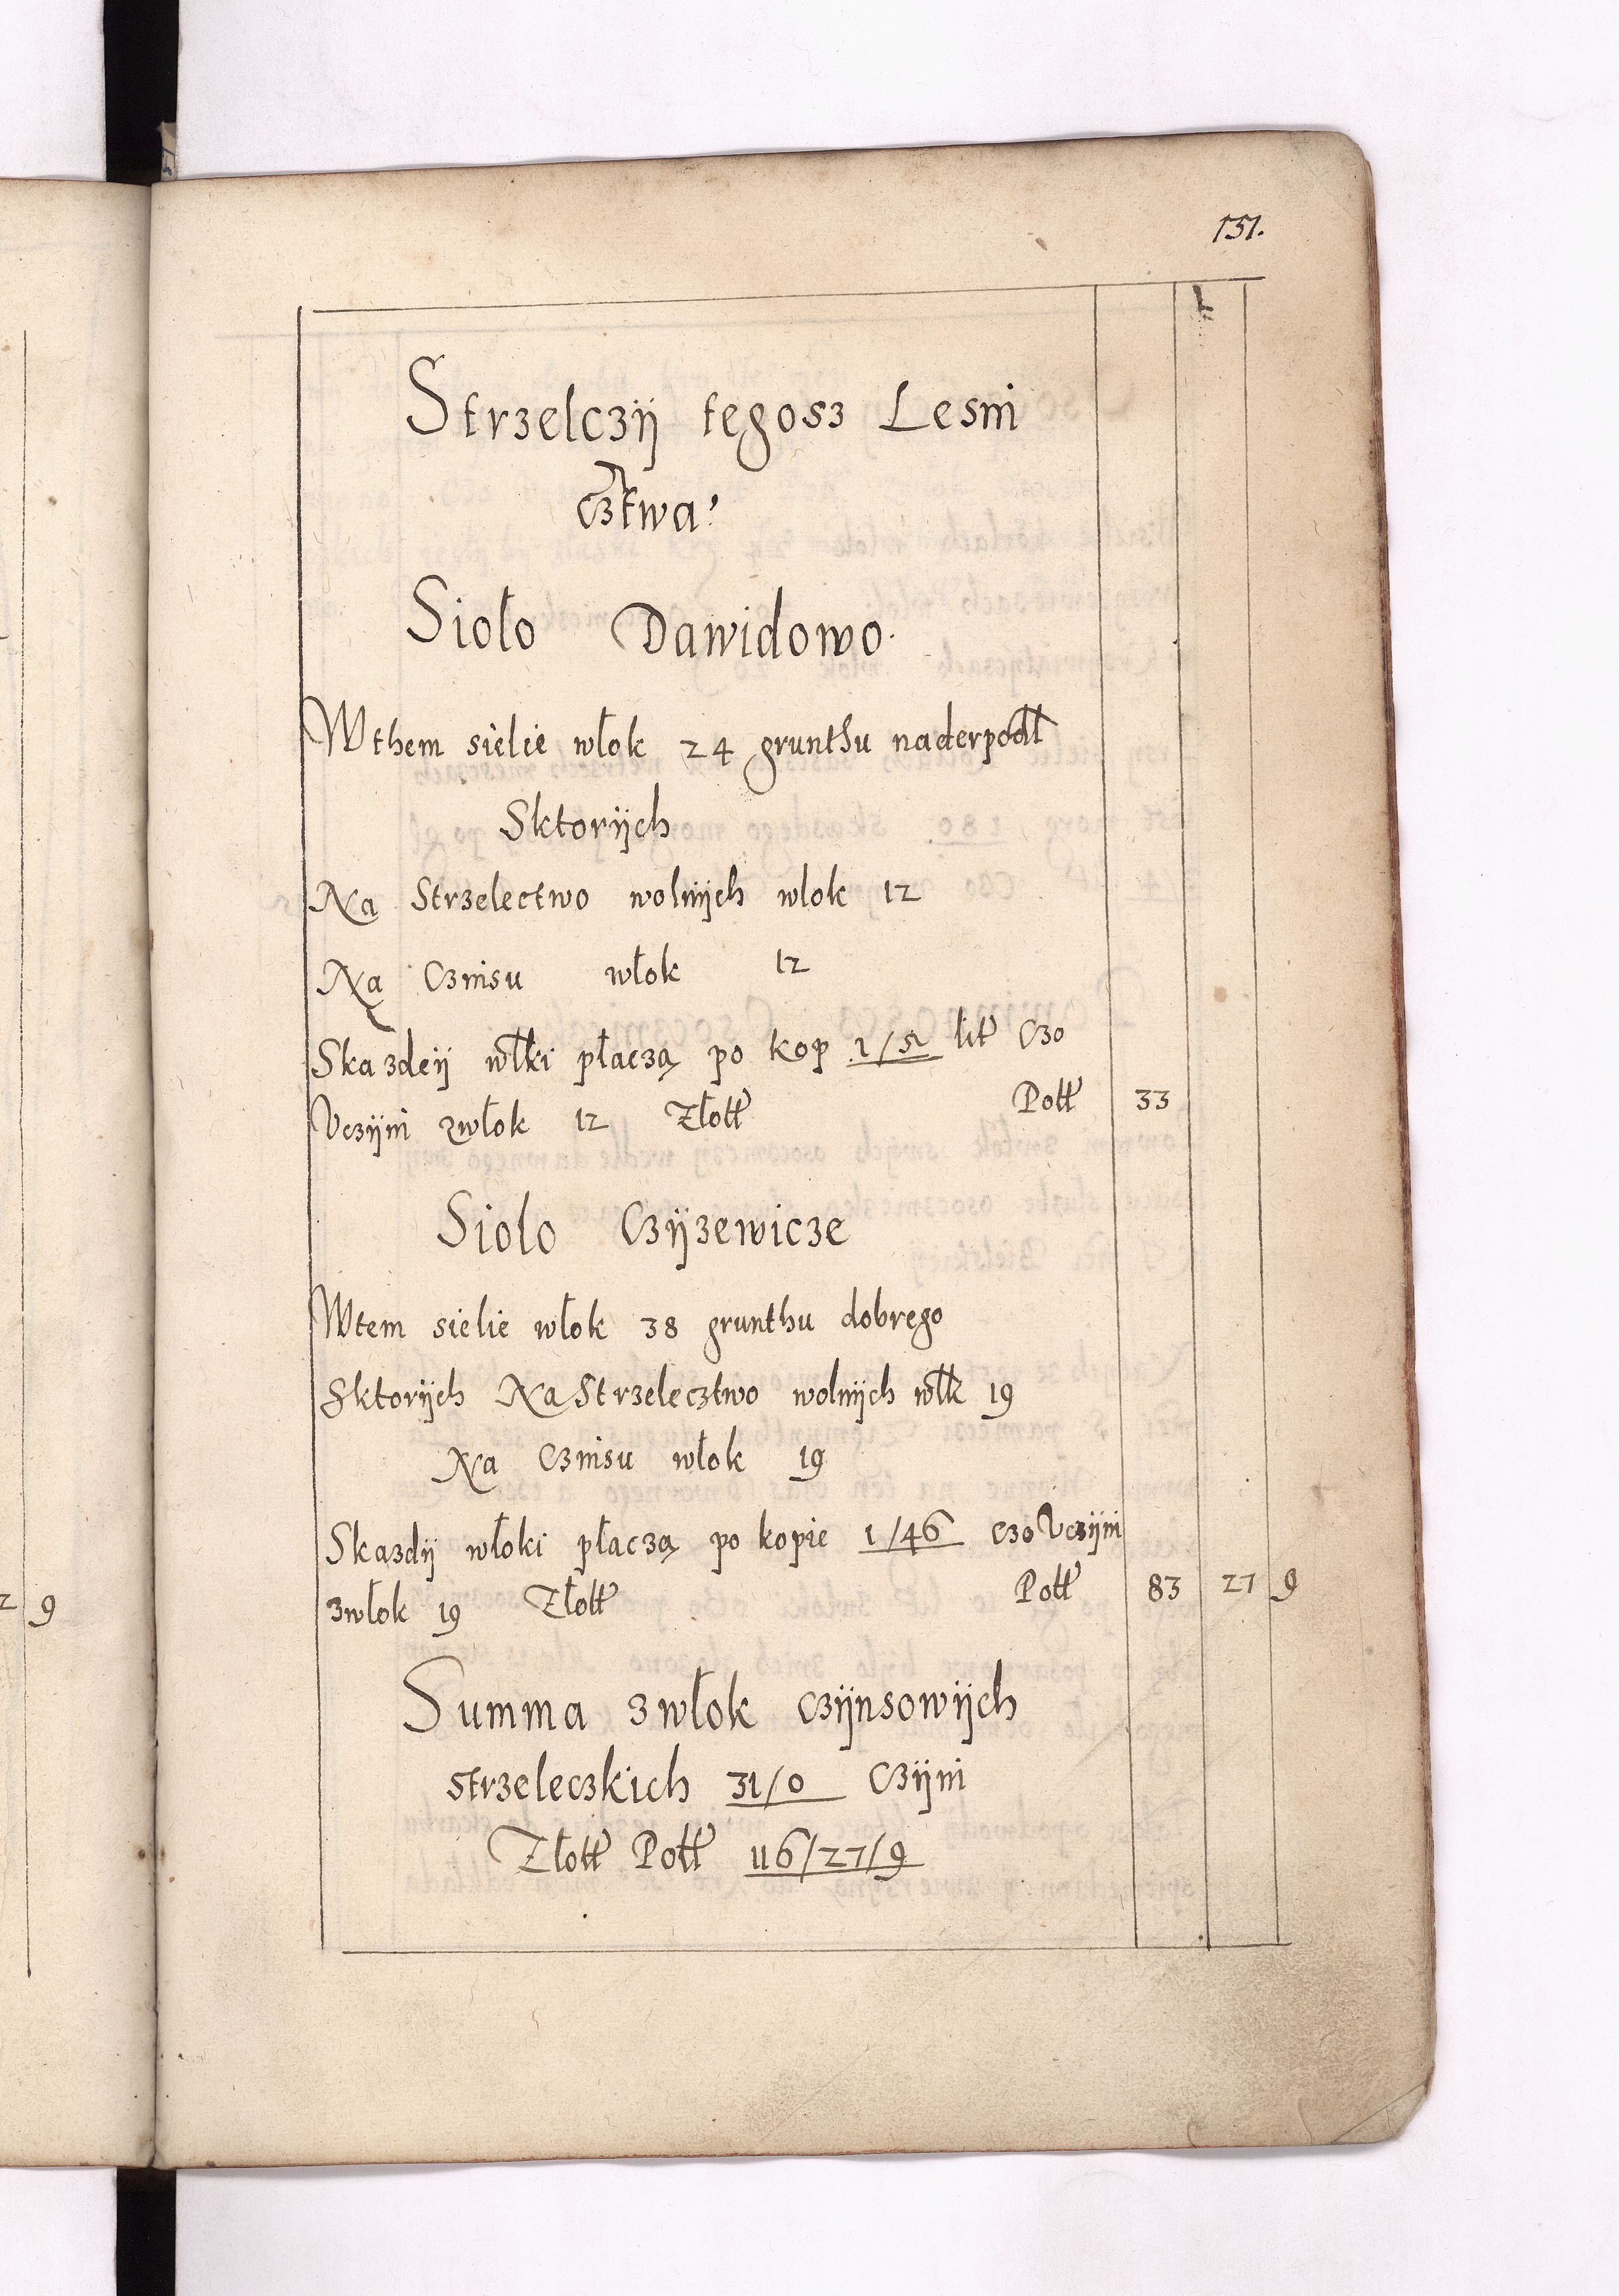 151.
Strzelczÿ tegosz Lesni
cztwa
Sioło Dawidowo
Wthem sielie włok 24 grunthu naderpodł
Sktorÿch
Na Strzelectwo wolnÿch wlok 12
Na Cznisu włok 12
Skazdeÿ włki płaczą po kop lit Czo
Vczÿni zwłok 12 Złott Poll 33
Siolo Czÿzewicze
Wtem sielie włok 38 grunthu dobrego
Sktorÿch Na Strzelecztwo wolnÿch włk 19
Na Cznisu włok 19
Skazdÿ włoki płaczą po kopie 1/46 czo Vczÿni
zwłok 19 Złott Poll 83 27 9
Summa zwłok czÿnsowÿch
strzeleczkich 31/0 Czÿni
Złott Poll 116/27/9
2 9